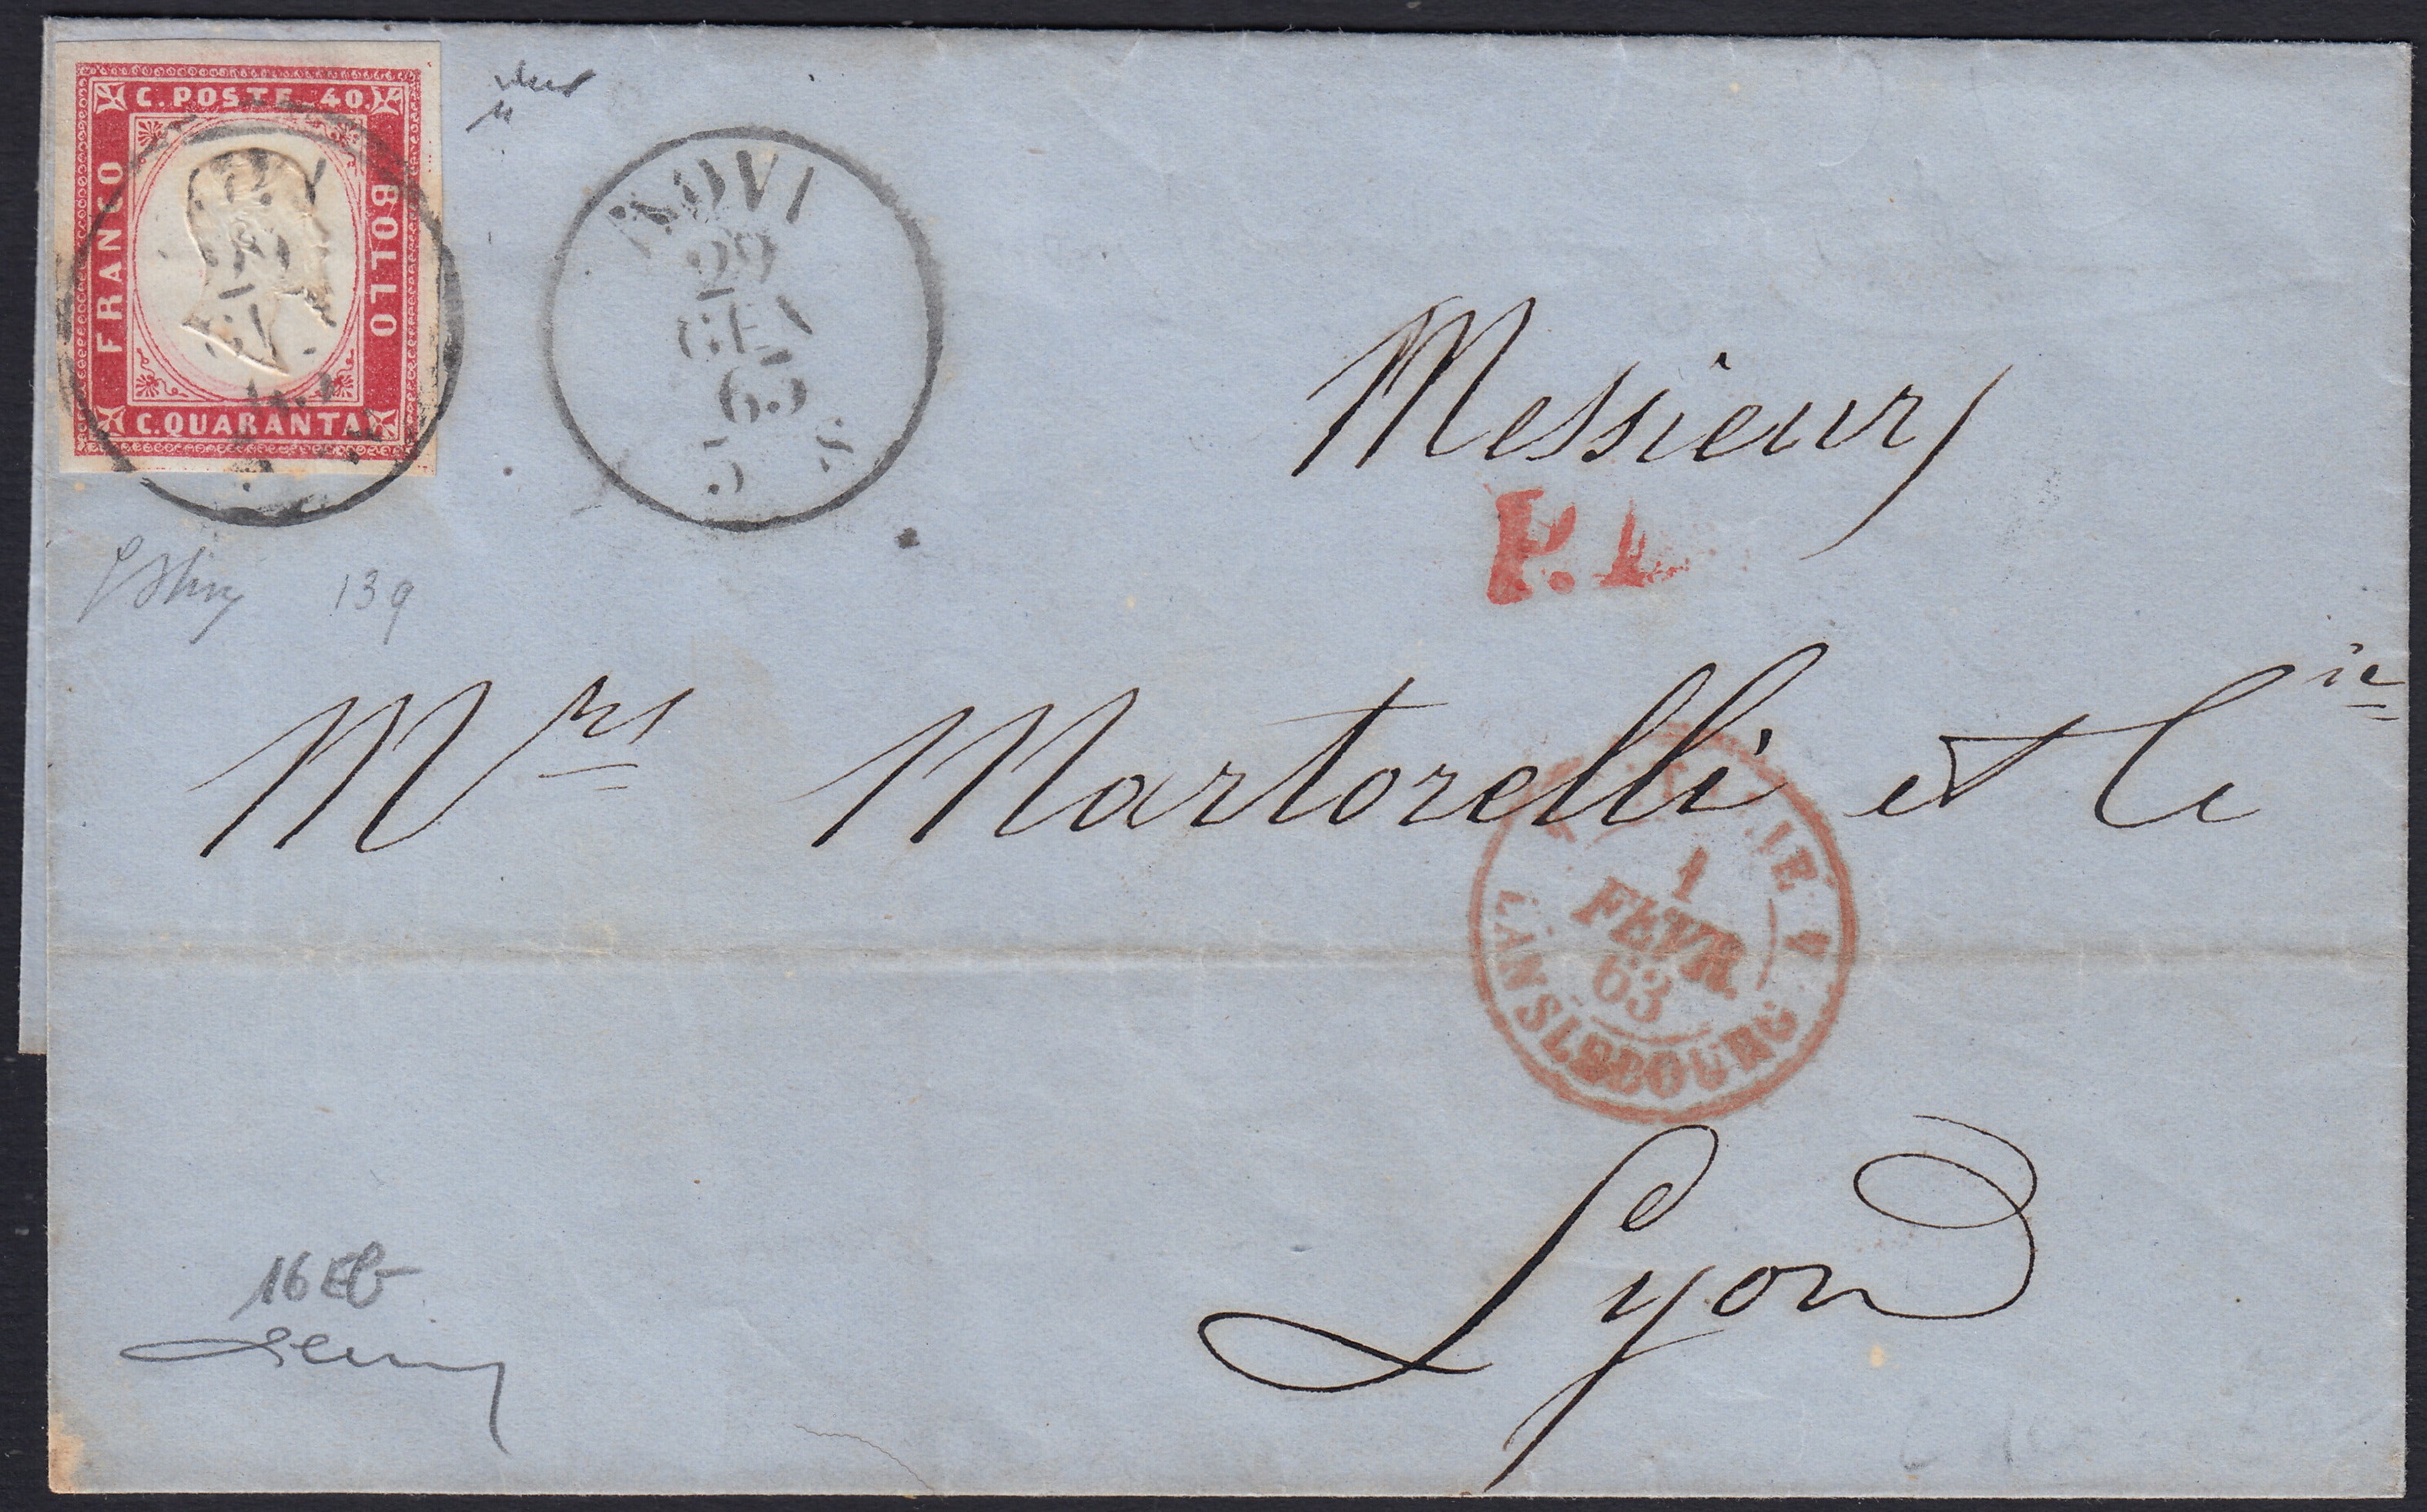 C. POSTE 40.
FRANCO
BOLLO
C. QUARANTA
NOVI
29
GEN
63
5 S
Messieurs
P.D.
Mrs Martorelli et Cie
1
FEVR
63
LANSLEBOURG
Lyon
139
16Eb